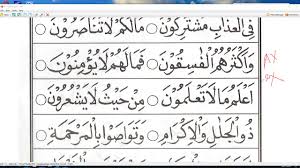 فِي الْعَذَابِ مُشْتَرِكُونَ ○ مَالَكُمْ لَا تَنَاصَرُونَ ○
وَأَكْثَرُهُمُ الْفٰسِقُونَ ○ فَمَالَهُمْ لَا يُؤْمِنُونَ ○
أَعْلَمُ مَالَا تَعْلَمُونَ ○ مِنْ حَيْثُ لَا يَشْعُرُونَ ○
ذُو الْجَلٰلِ وَالْإِكْرَامِ ○ وَتَوَاصَوْا بِالْمَرْحَمَةِ ○